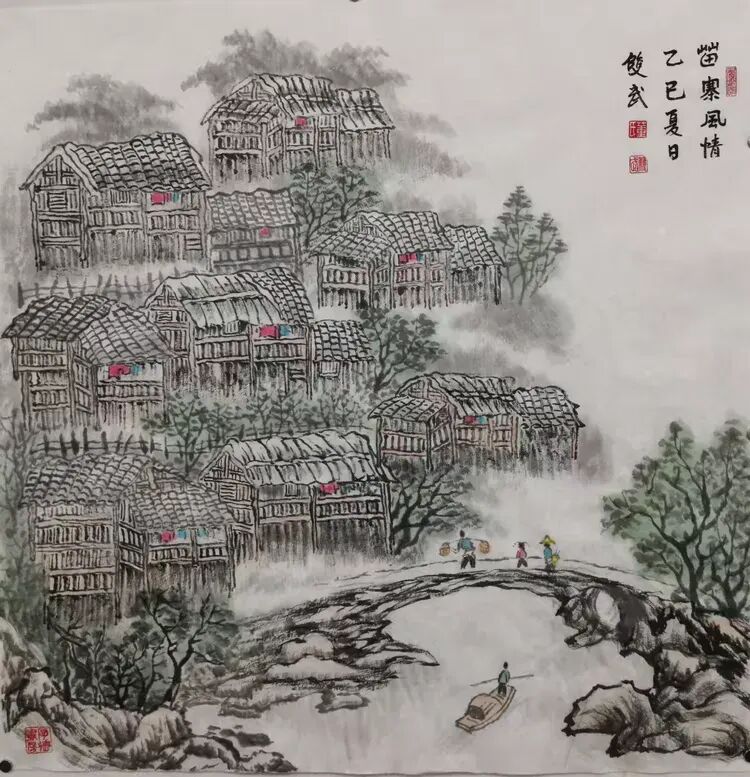 苗寨風情
乙巳夏日
雙武